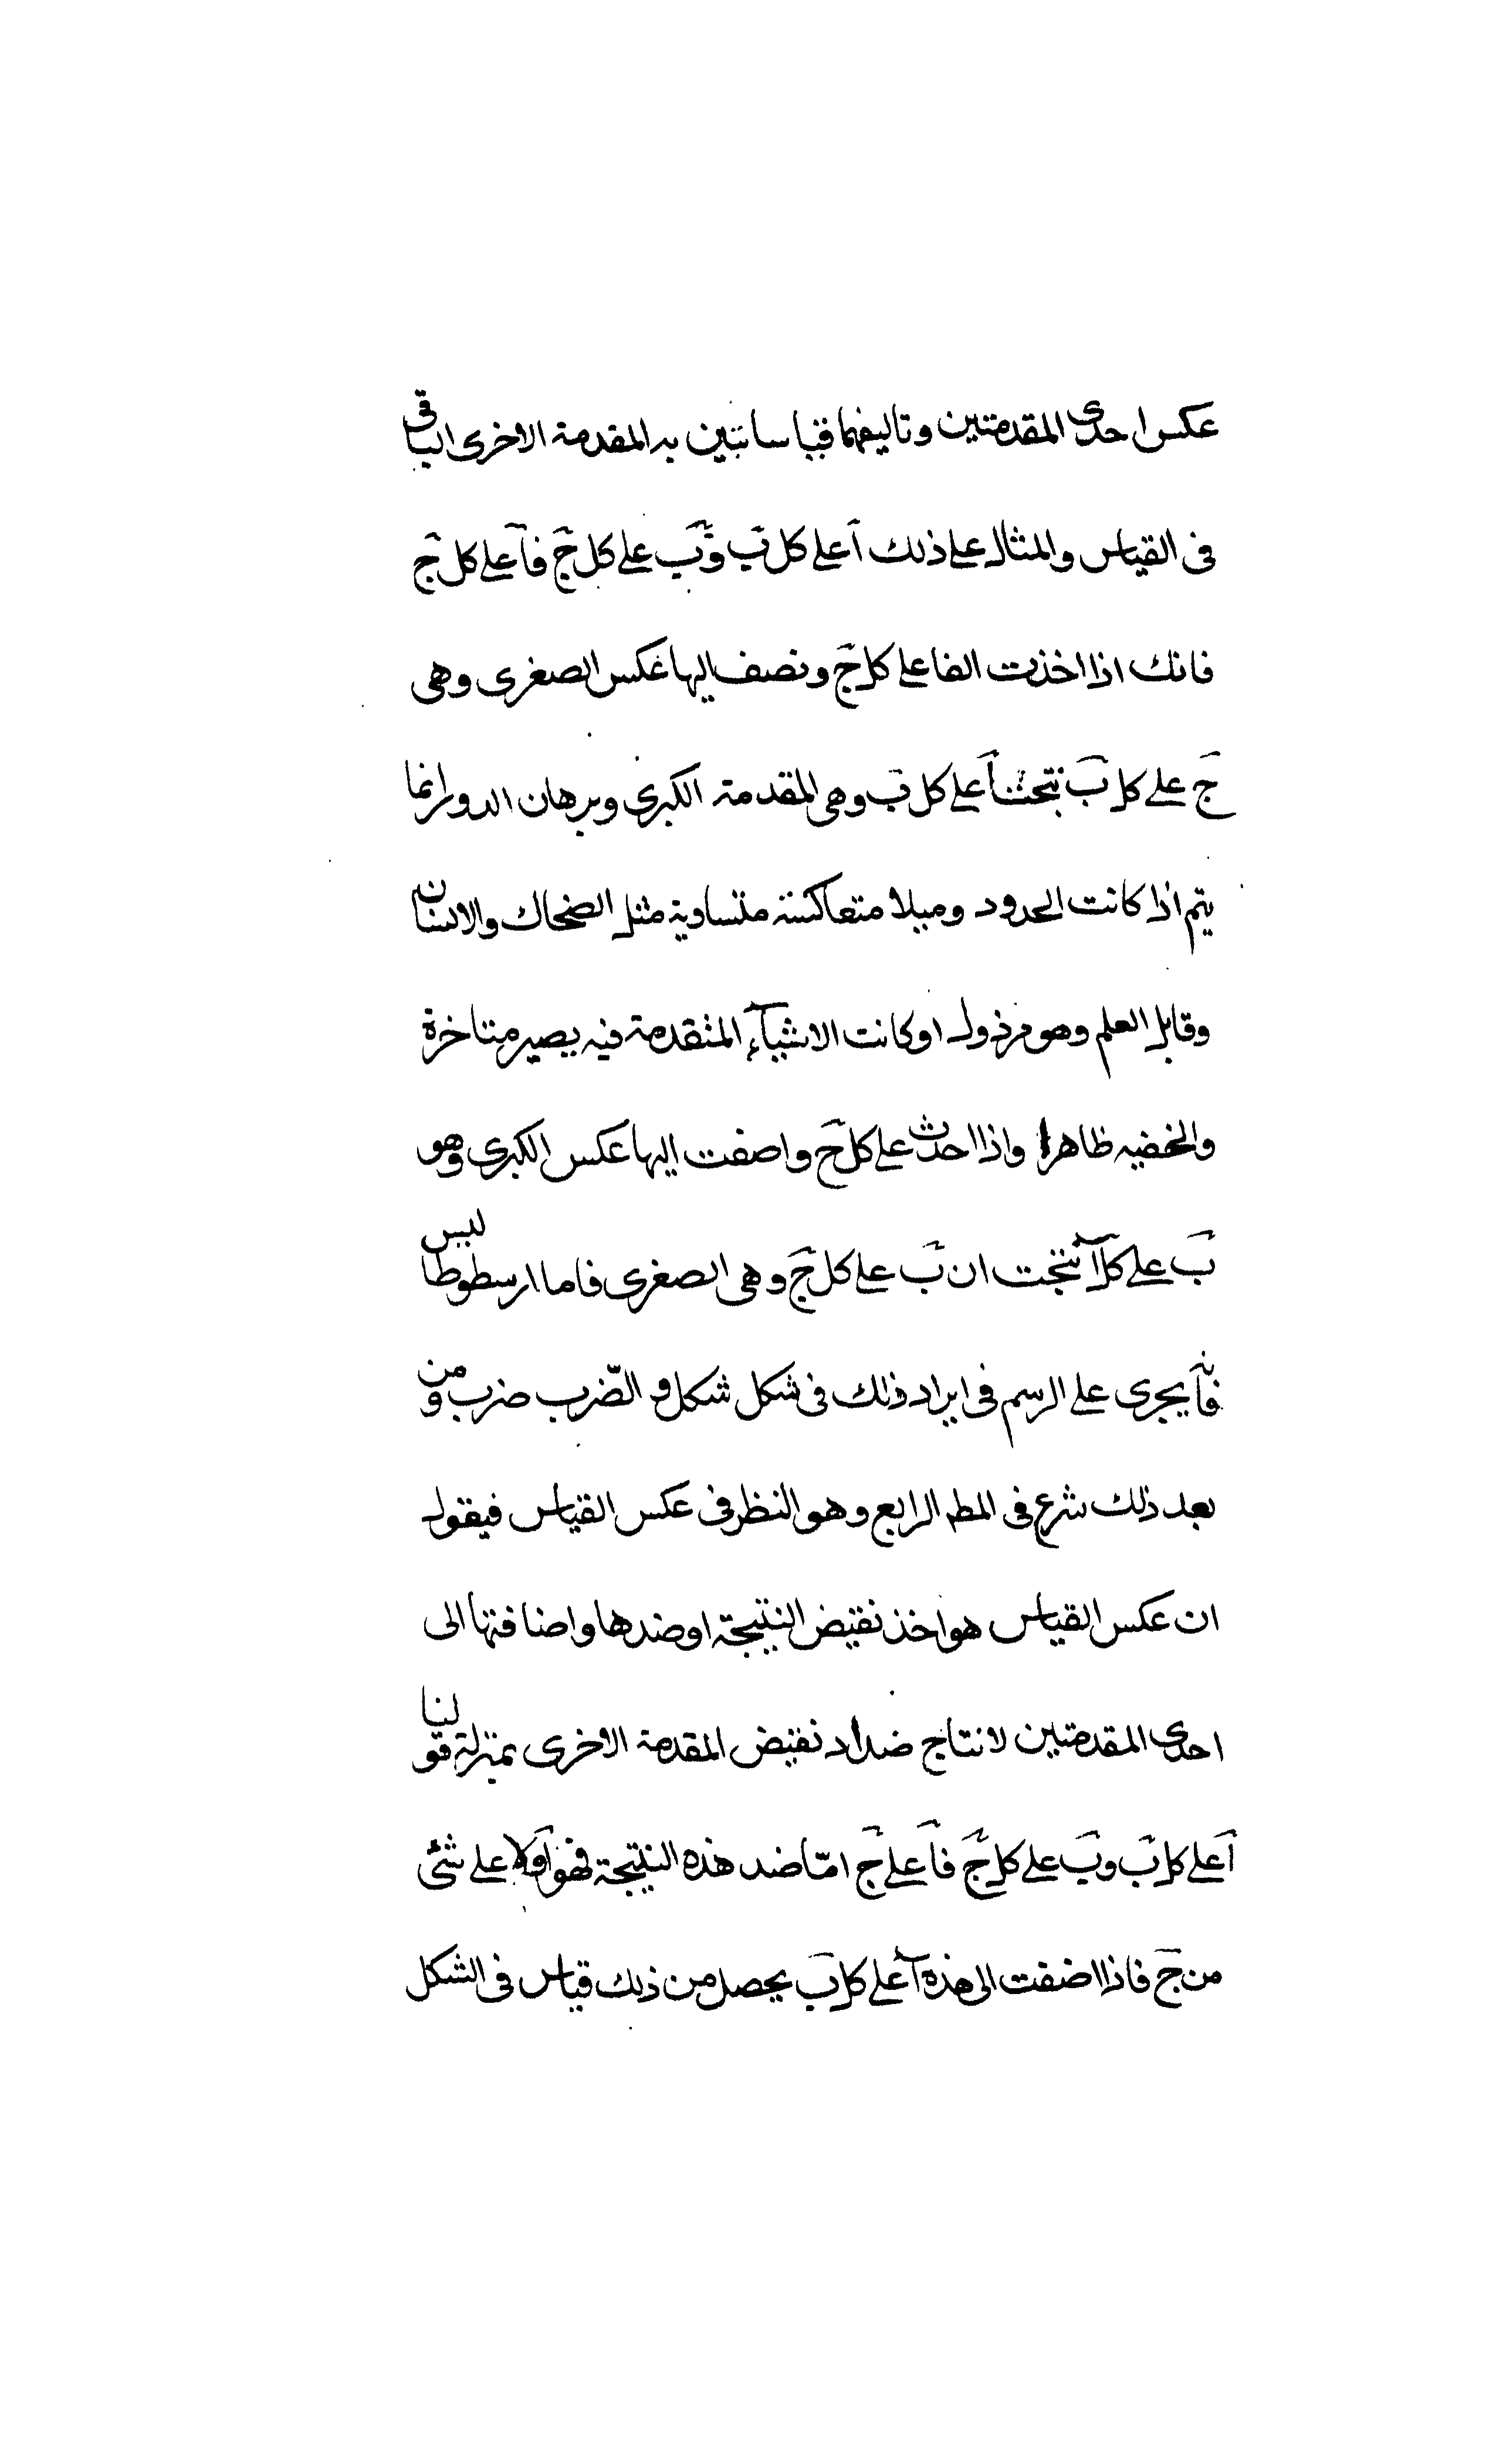 عكس احدى المقدمتين وتاليفهما قياسا تبين به المقدمة الاخرى الباقى
فى القياس والمثال على ذلك آ على كل بَ وبَ على كل جَ فآ على كل جَ
فانك اذا اخذت الفا على كل جَ ونصف اليها عكس الصغرى وهى
جَ على كل بَ نتجت آ على كل بَ وهى المقدمة الكبرى وبرهان الدور انما
يتم اذا كانت الحدود ومبلا متعاكسة متساوية مثل الضحاك والانسان
وقابل العلم وهو مرذول او كانت الاشيآء المتقدمة فيه يصير متاخرة
والخفيه ظاهرا واذا احدث على كل جَ واصفت اليها عكس الكبرى وهو
بَ على كل آ نتجت ان بَ على كل جَ وهى الصغرى فاما ارسطوطاليس
فانه يجرى على الرسم فى ايراد ذلك فى شكل شكل و الضّرب ضرب ومن
بعد ذلك شرع فى المط الرابع وهو النظر فى عكس القياس فيقول
ان عكس القياس هو اخذ نقيض النتيجة او ضدها واضافتها الى
احدى المقدمتين لانتاج ضد اد نقيض المقدمة الاخرى بمنزلة قولنا
آ على كل بَ وبَ على كل جَ فآ على جَ امّا ضد هذه النتيجة فهو آ ولا على شئ
من جَ فاذا اضفت الى هذه آ على كل بَ يحصل من ذلك قياس فى الشكل